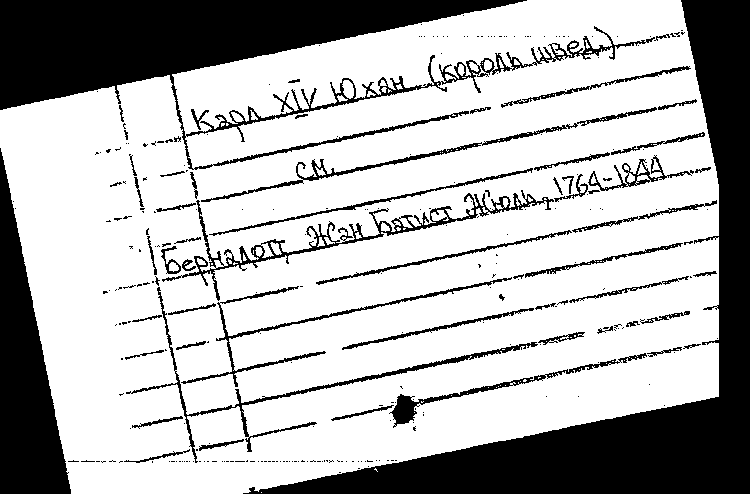 Карл XIV Юхан (король швед.)
см.
Бернадотт Жан Батист Жюль, 1764-1844